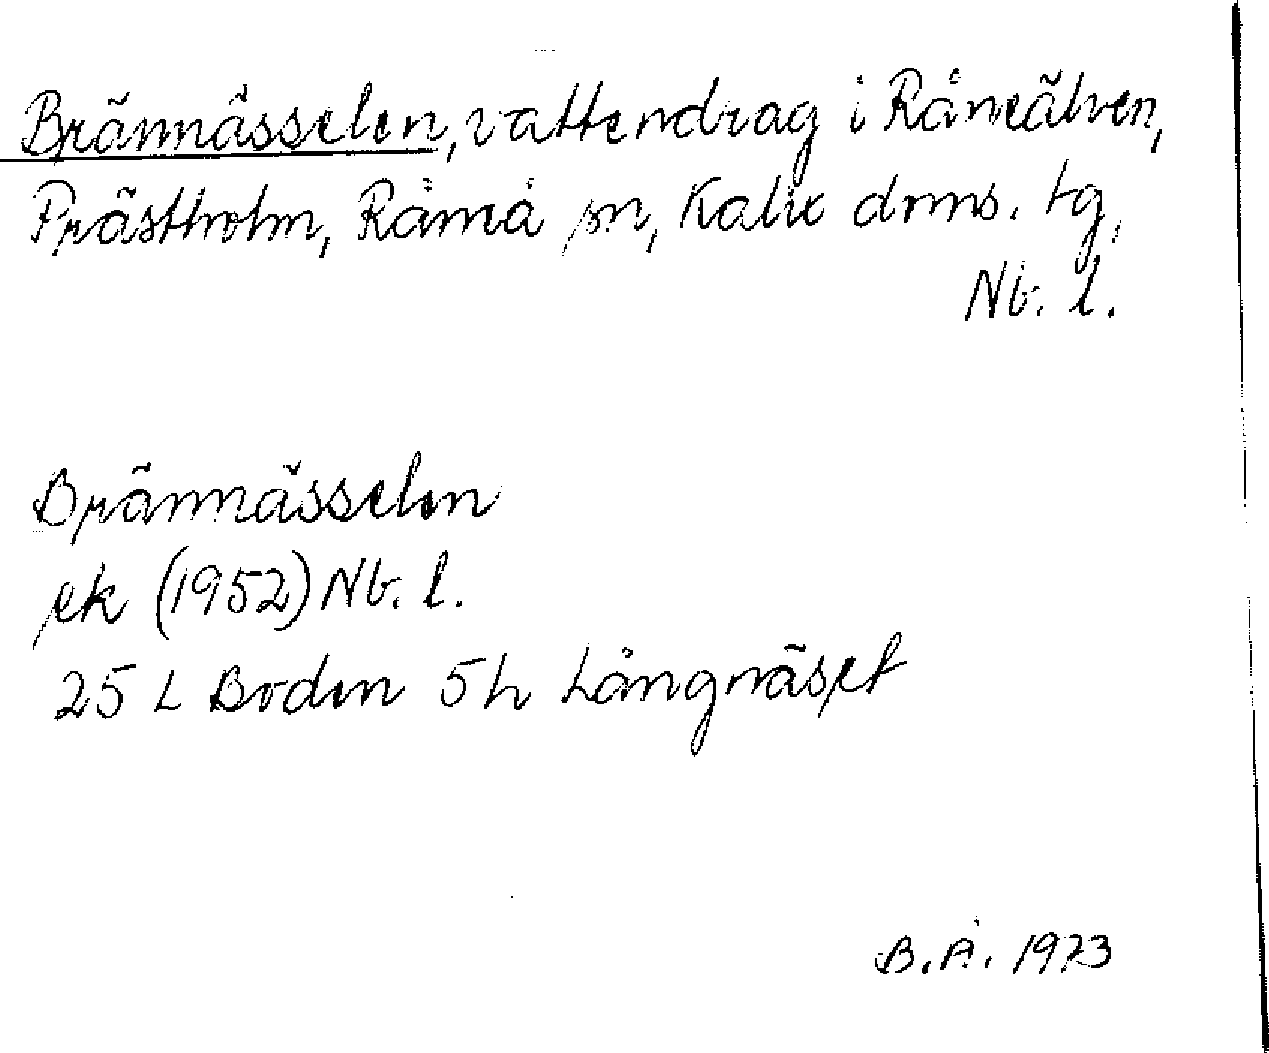 Brännässelen, vattendrag i Råneälven,
Prästholm, Råneå sn, Kalix dms. tg,
Nb. l.
Brännässelen
ek (1952) Nb. l.
25 L Boden 5h Långnäset
B.Å. 1973